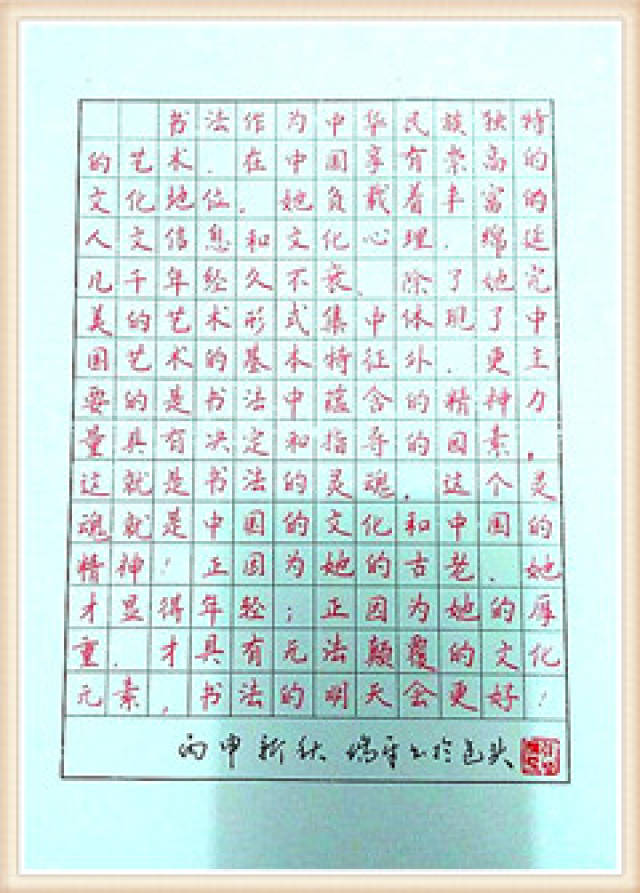 书法作为中华民族独特
的艺术.在中国享有崇高的
文化地位.她负载着丰富的
人文信息和文化心理.绵延
几千年经久不衰.除了她完
美的艺术形式集中体现了中
国艺术的基本特征外.更主
要的是书法中蕴含的精神力
量具有决定和指导的因素.
这就是书法的灵魂.这个灵
魂就是中国的文化和中国的
精神!正因为她的古老.她
才显得年轻;正因为她的厚
重.才具有无法颠覆的文化
元素,书法的明天会更好!
丙申新秋 瑞平书于包头